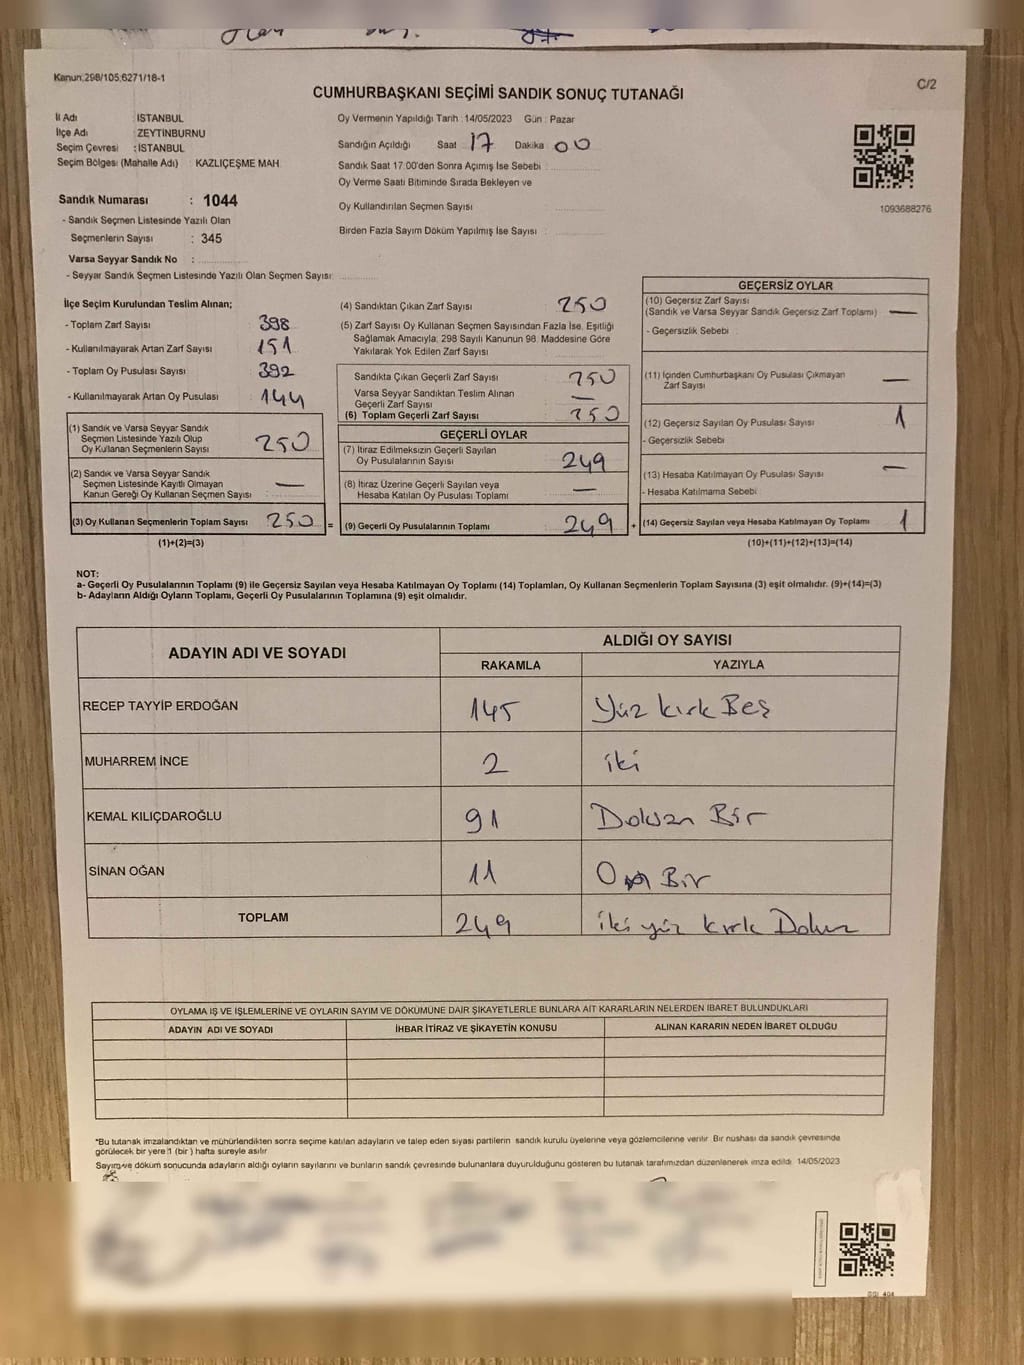 Kanun;298/105,6271/18-1
C/2
CUMHURBAŞKANI SEÇİMİ SANDIK SONUÇ TUTANAĞI
İl Adı : İSTANBUL
İlçe Adı : ZEYTİNBURNU
Seçim Çevresi : İSTANBUL
Seçim Bölgesi (Mahalle Adı) : KAZLIÇEŞME MAH.
Oy Vermenin Yapıldığı Tarih : 14/05/2023 Gün : Pazar
Sandığın Açıldığı Saat 17 Dakika 00
Sandık Saat 17:00'den Sonra Açımış İse Sebebi :
Oy Verme Saati Bitiminde Sırada Bekleyen ve
Oy Kullandırılan Seçmen Sayısı
Birden Fazla Sayım Döküm Yapılmış İse Sayısı
1093688276
Sandık Numarası : 1044
- Sandık Seçmen Listesinde Yazılı Olan
Seçmenlerin Sayısı : 345
Varsa Seyyar Sandık No :
- Seyyar Sandık Seçmen Listesinde Yazılı Olan Seçmen Sayısı:
İlçe Seçim Kurulundan Teslim Alınan;
- Toplam Zarf Sayısı 398
- Kullanılmayarak Artan Zarf Sayısı 151
- Toplam Oy Pusulası Sayısı 392
- Kullanılmayarak Artan Oy Pusulası 144
(1) Sandık ve Varsa Seyyar Sandık
Seçmen Listesinde Yazılı Olup
Oy Kullanan Seçmenlerin Sayısı 250
(2) Sandık ve Varsa Seyyar Sandık
Seçmen Listesinde Kayıtlı Olmayan
Kanun Gereği Oy Kullanan Seçmen Sayısı —
(3) Oy Kullanan Seçmenlerin Toplam Sayısı 250 =
(1)+(2)=(3)
(4) Sandıktan Çıkan Zarf Sayısı 250
(5) Zarf Sayısı Oy Kullanan Seçmen Sayısından Fazla İse, Eşitliği
Sağlamak Amacıyla, 298 Sayılı Kanunun 98. Maddesine Göre
Yakılarak Yok Edilen Zarf Sayısı
Sandıkta Çıkan Geçerli Zarf Sayısı 250
Varsa Seyyar Sandıktan Teslim Alınan
Geçerli Zarf Sayısı —
(6) Toplam Geçerli Zarf Sayısı 250
GEÇERLİ OYLAR
(7) İtiraz Edilmeksizin Geçerli Sayılan
Oy Pusulalarının Sayısı 249
(8) İtiraz Üzerine Geçerli Sayılan veya
Hesaba Katılan Oy Pusulası Toplamı —
(9) Geçerli Oy Pusulalarının Toplamı 249 +
GEÇERSİZ OYLAR
(10) Geçersiz Zarf Sayısı
(Sandık ve Varsa Seyyar Sandık Geçersiz Zarf Toplamı) —
- Geçersizlik Sebebi
(11) İçinden Cumhurbaşkanı Oy Pusulası Çıkmayan
Zarf Sayısı —
(12) Geçersiz Sayılan Oy Pusulası Sayısı 1
- Geçersizlik Sebebi
(13) Hesaba Katılmayan Oy Pusulası Sayısı —
- Hesaba Katılmama Sebebi
(14) Geçersiz Sayılan veya Hesaba Katılmayan Oy Toplamı 1
(10)+(11)+(12)+(13)=(14)
NOT:
a- Geçerli Oy Pusulalarının Toplamı (9) ile Geçersiz Sayılan veya Hesaba Katılmayan Oy Toplamı (14) Toplamları, Oy Kullanan Seçmenlerin Toplam Sayısına (3) eşit olmalıdır. (9)+(14)=(3)
b- Adayların Aldığı Oyların Toplamı, Geçerli Oy Pusulalarının Toplamına (9) eşit olmalıdır.
ADAYIN ADI VE SOYADI
ALDIĞI OY SAYISI
RAKAMLA YAZIYLA
RECEP TAYYİP ERDOĞAN 145 Yüz kırk Beş
MUHARREM İNCE 2 iki
KEMAL KILIÇDAROĞLU 91 Doksan Bir
SİNAN OĞAN 11 On Bir
TOPLAM 249 iki yüz kırk Dokuz
OYLAMA İŞ VE İŞLEMLERİNE VE OYLARIN SAYIM VE DÖKÜMÜNE DAİR ŞİKAYETLERLE BUNLARA AİT KARARLARIN NELERDEN İBARET BULUNDUKLARI
ADAYIN ADI VE SOYADI İHBAR İTİRAZ VE ŞİKAYETİN KONUSU ALINAN KARARIN NEDEN İBARET OLDUĞU
*Bu tutanak imzalandıktan ve mühürlendikten sonra seçime katılan adayların ve talep eden siyasi partilerin sandık kurulu üyelerine veya gözlemcilerine verilir. Bir nüshası da sandık çevresinde
görülecek bir yere 1 (bir) hafta süreyle asılır.
Sayım ve döküm sonucunda adayların aldığı oyların sayılarını ve bunların sandık çevresinde bulunanlara duyurulduğunu gösteren bu tutanak tarafımızdan düzenlenerek imza edildi. 14/05/2023